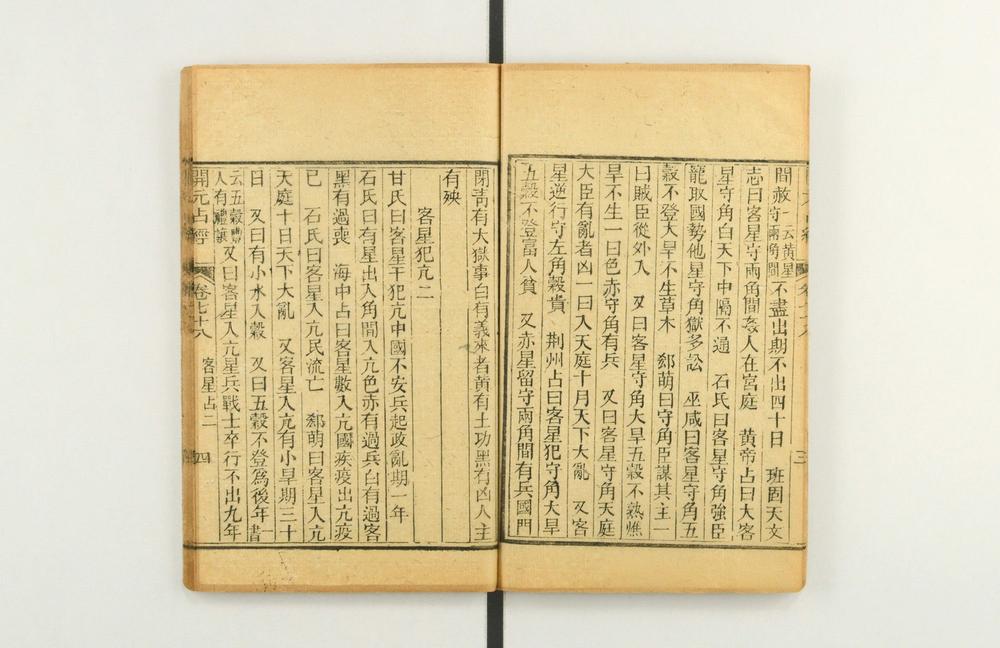 間赦守兩角間一云黃星不盡出期不出四十日　班固天文
志曰客星守兩角間姦人在宮庭　黃帝占曰大客
星守角白天下中隔不通　石氏曰客星守角強臣
寵取國勢他星守角獄多訟　巫咸曰客星守角五
穀不登大旱不生草木　郄萌曰守角臣謀其主一
曰賊臣從外入　又曰客星守角大旱五穀不熟燋
旱不生一曰色赤守角有兵　又曰客星守角天庭
大臣有亂者凶一曰入天庭十月天下大亂　又客
星逆行守左角穀貴　荆州占曰客星犯守角大旱
五穀不登富人貧　又赤星留守兩角間有兵國門
三
閉靑有大獄事白有義來者黃有土功黑有凶人主
有殃
客星犯亢二
甘氏曰客星干犯亢中國不安兵起政亂期一年
石氏曰有星出入角間入亢色赤有過兵白有過客
黑有過喪　海中占曰客星數入亢國疾疫出亢疫
已　石氏曰客星入亢民流亡　郄萌曰客星入亢
天庭十日天下大亂　又客星入亢有小旱期三十
日　又曰有小水入穀　又曰五穀不登爲後年一書
云五穀豐人有禮讓又曰客星入亢星兵戰士卒行不出九年
開元占經　卷七十八　客星占二　四